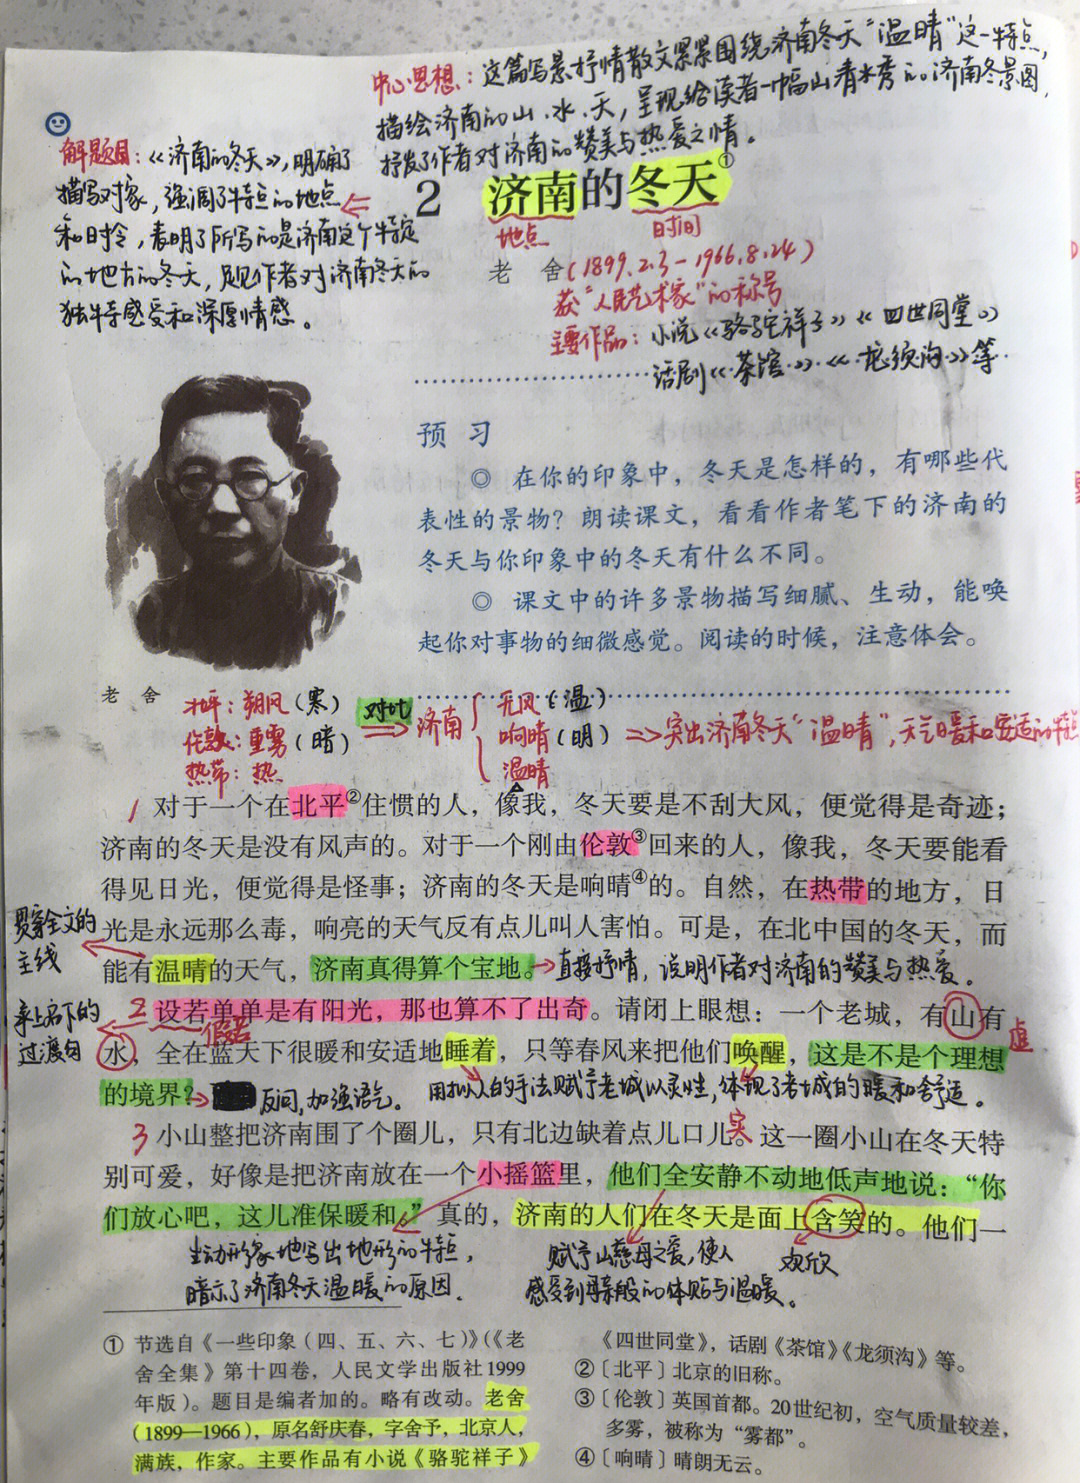 中心思想：这篇写景抒情散文紧紧围绕济南冬天"温晴"这一特点，
描绘济南的山、水、天，呈现给读者一幅山清水秀的济南冬景图，
抒发了作者对济南的赞美与热爱之情。
解题目：《济南的冬天》，明确了
描写对象，强调了特点的地点
和时令，表明了所写的是济南这个特定
的地方的冬天，见作者对济南冬天的
独特感受和深厚情感。
2 济南的冬天①
地点 时间
老 舍(1899.2.3－1966.8.24)
获"人民艺术家"的称号
主要作品：小说《骆驼祥子》《四世同堂》
话剧《茶馆》《龙须沟》等
预 习
◎ 在你的印象中，冬天是怎样的，有哪些代
表性的景物？朗读课文，看看作者笔下的济南的
冬天与你印象中的冬天有什么不同。
◎ 课文中的许多景物描写细腻、生动，能唤
起你对事物的细微感觉。阅读的时候，注意体会。
老 舍
北平：朔风(寒) 对比 济南 无风(温)
伦敦：重雾(暗) 响晴(明) 突出济南冬天"温晴"，天气暖和安适的特
热带：热 温晴
1 对于一个在北平②住惯的人，像我，冬天要是不刮大风，便觉得是奇迹；
济南的冬天是没有风声的。对于一个刚由伦敦③回来的人，像我，冬天要能看
得见日光，便觉得是怪事；济南的冬天是响晴④的。自然，在热带的地方，日
光是永远那么毒，响亮的天气反有点儿叫人害怕。可是，在北中国的冬天，而
能有温晴的天气，济南真得算个宝地。直接抒情，说明作者对济南的赞美与热爱。
贯穿全文的
主线
2 设若单单是有阳光，那也算不了出奇。请闭上眼想：一个老城，有山有
假若
承上启下的
过渡句
水，全在蓝天下很暖和安适地睡着，只等春风来把他们唤醒，这是不是个理想 虚
的境界？反问，加强语气。 用拟人的手法赋予老城以灵性，体现了老城的暖和舒适。
3 小山整把济南围了个圈儿，只有北边缺着点儿口儿。实 这一圈小山在冬天特
别可爱，好像是把济南放在一个小摇篮里，他们全安静不动地低声地说：“你
们放心吧，这儿准保暖和。”真的，济南的人们在冬天是面上含笑的。他们一
生动形象地写出地形的特点，
暗示了济南冬天温暖的原因.
赋予山慈母之爱，使人
感受到母亲般的体贴与温暖。
欢欣
① 节选自《一些印象（四、五、六、七）》（《老
舍全集》第十四卷，人民文学出版社1999
年版）。题目是编者加的。略有改动。老舍
（1899—1966），原名舒庆春，字舍予，北京人，
满族，作家。主要作品有小说《骆驼祥子》
《四世同堂》，话剧《茶馆》《龙须沟》等。
②〔北平〕北京的旧称。
③〔伦敦〕英国首都。20世纪初，空气质量较差，
多雾，被称为“雾都”。
④〔响晴〕晴朗无云。